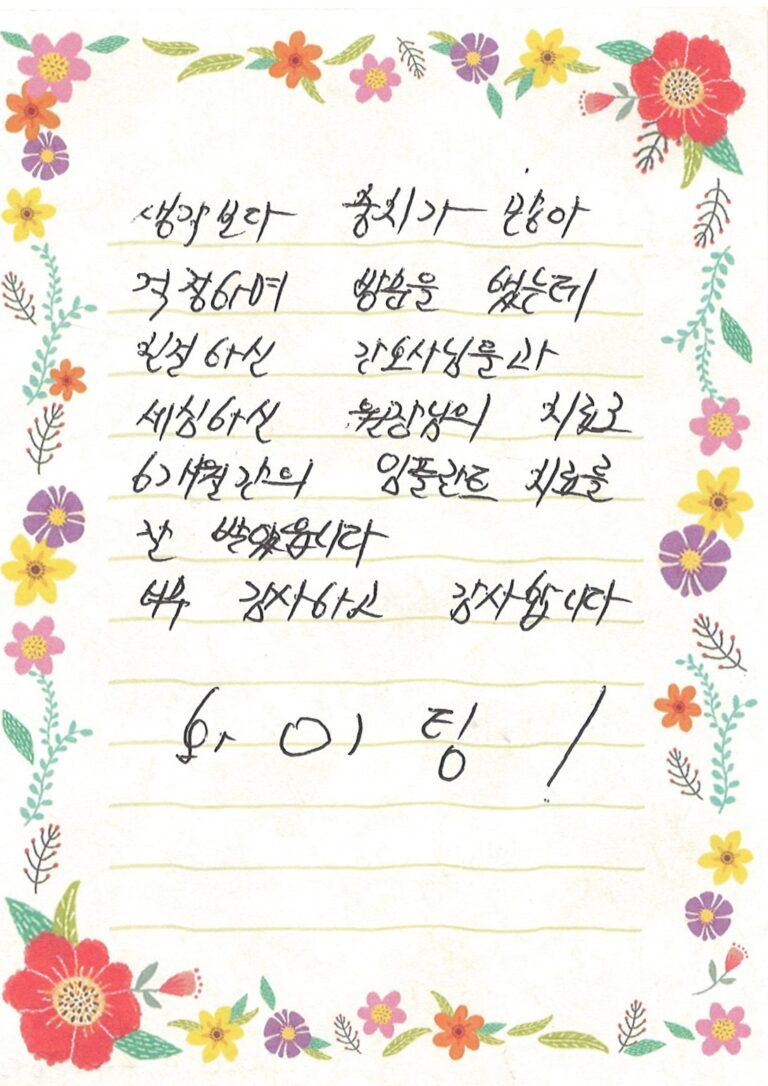 생각보다 충치가 많아
걱정하며 방문을 했는데
친절하신 간호사님들과
세심하신 원장님의 치료로
6개월간의 임플란트 치료를
잘 받았습니다
너무 감사하고 감사합니다
화이팅!